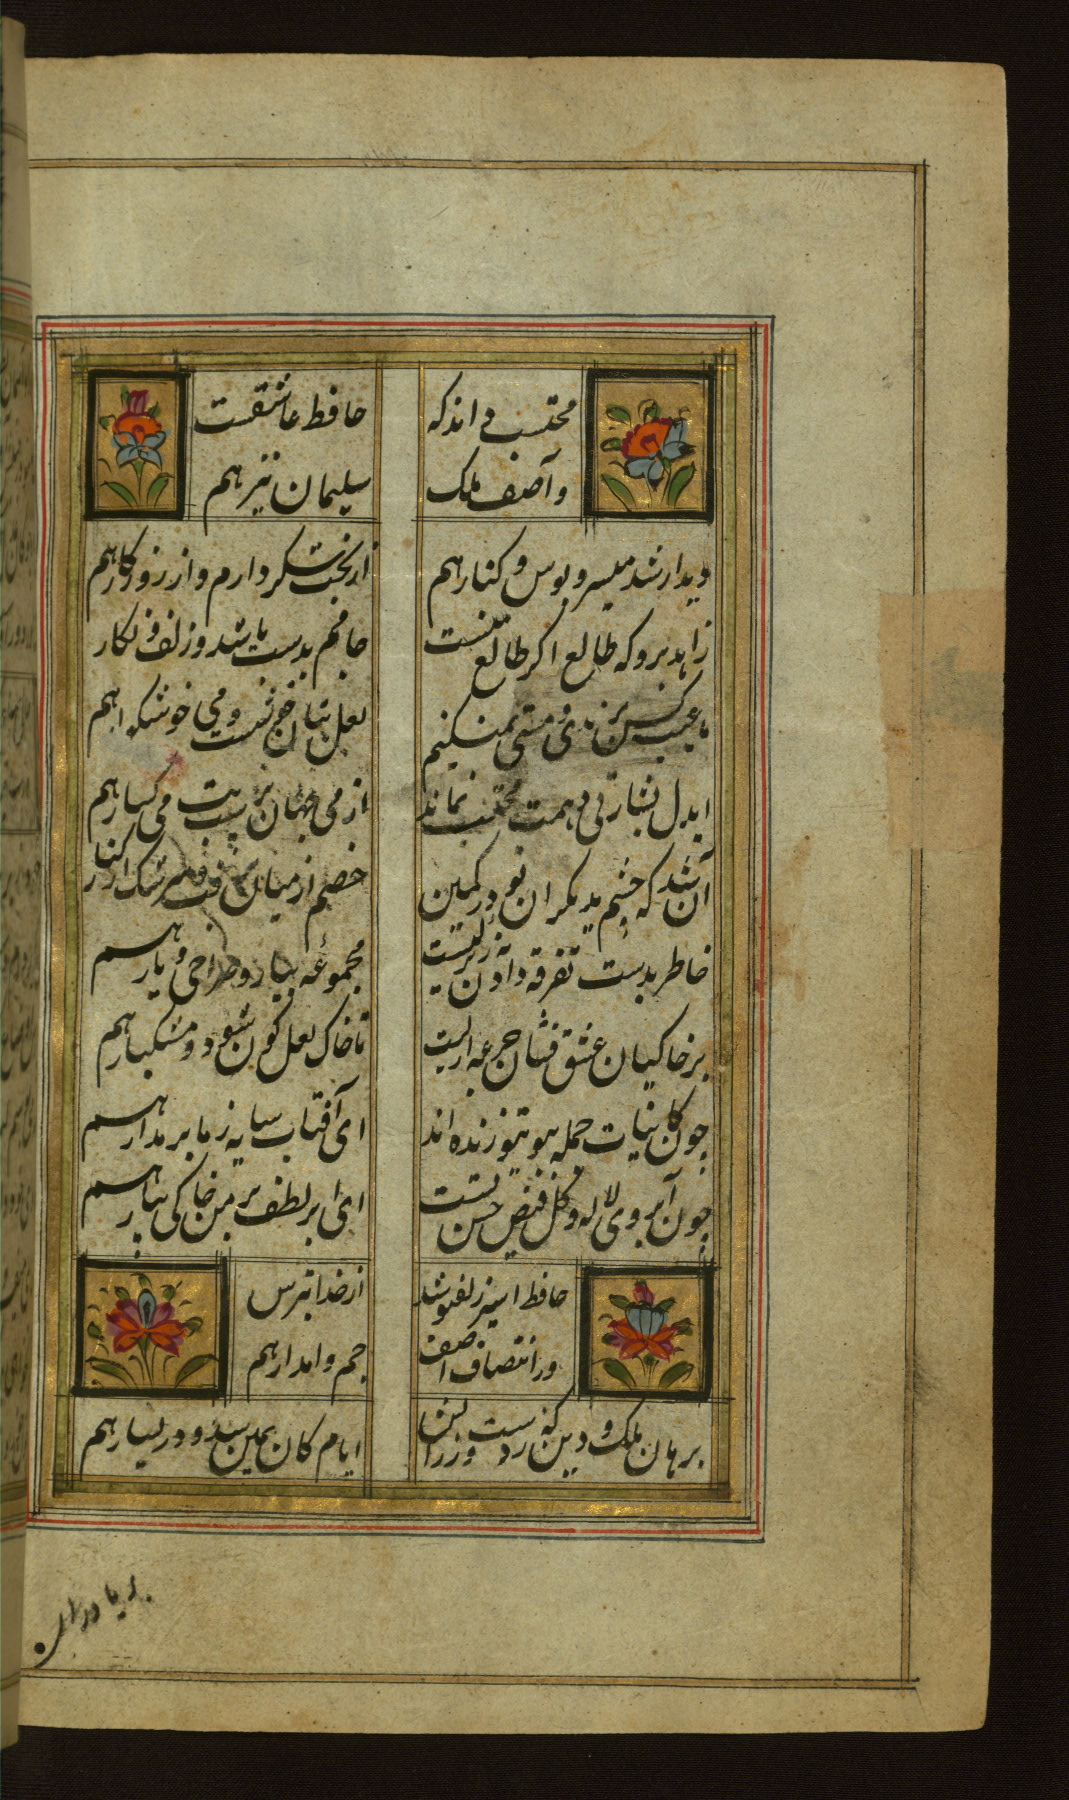 محتسب داند که
حافظ عاشقست
و آصف ملک
سلیمان نیز هم
دیدار شد میسر و بوس و کنار هم
از بخت شکر دارم و از روزگار هم
زاهد برو که طالع اکر طالع منست
جامم بدست باشد و زلف نکار
ما عیب کس برندی و مستی نمیکنیم
لعل بتان خوشست و می خوشکوار هم
ایدل بشارتی دهمت محتسب نماند
از می جهان پر است و بت می کسار هم
آن شد که چشم بد نکران بود در کمین
خصم از میان برفت و سرشک از کنار
خاطر بدست تفرقه دادن نه زیرکیست
مجموعه بیار و صراحی و یار هم
بر خاکیان عشق فشان جرعه لبت
تا خاک لعل کون شود و مشکبار هم
چون کاینات جمله ببوی تو زنده اند
ای آفتاب سایه ز ما بر مدار هم
چون آبروی لاله و کل فیض حسن تست
ای ابر لطف بر من خاکی ببار هم
حافظ اسیر زلف تو شد
از خدا بترس
و از انتصاف آصف
جم اقتدار هم
برهان ملک و دین که ز دست وزارتش
ایام کان یمین شد و دریا یسار هم
بر یاد رای